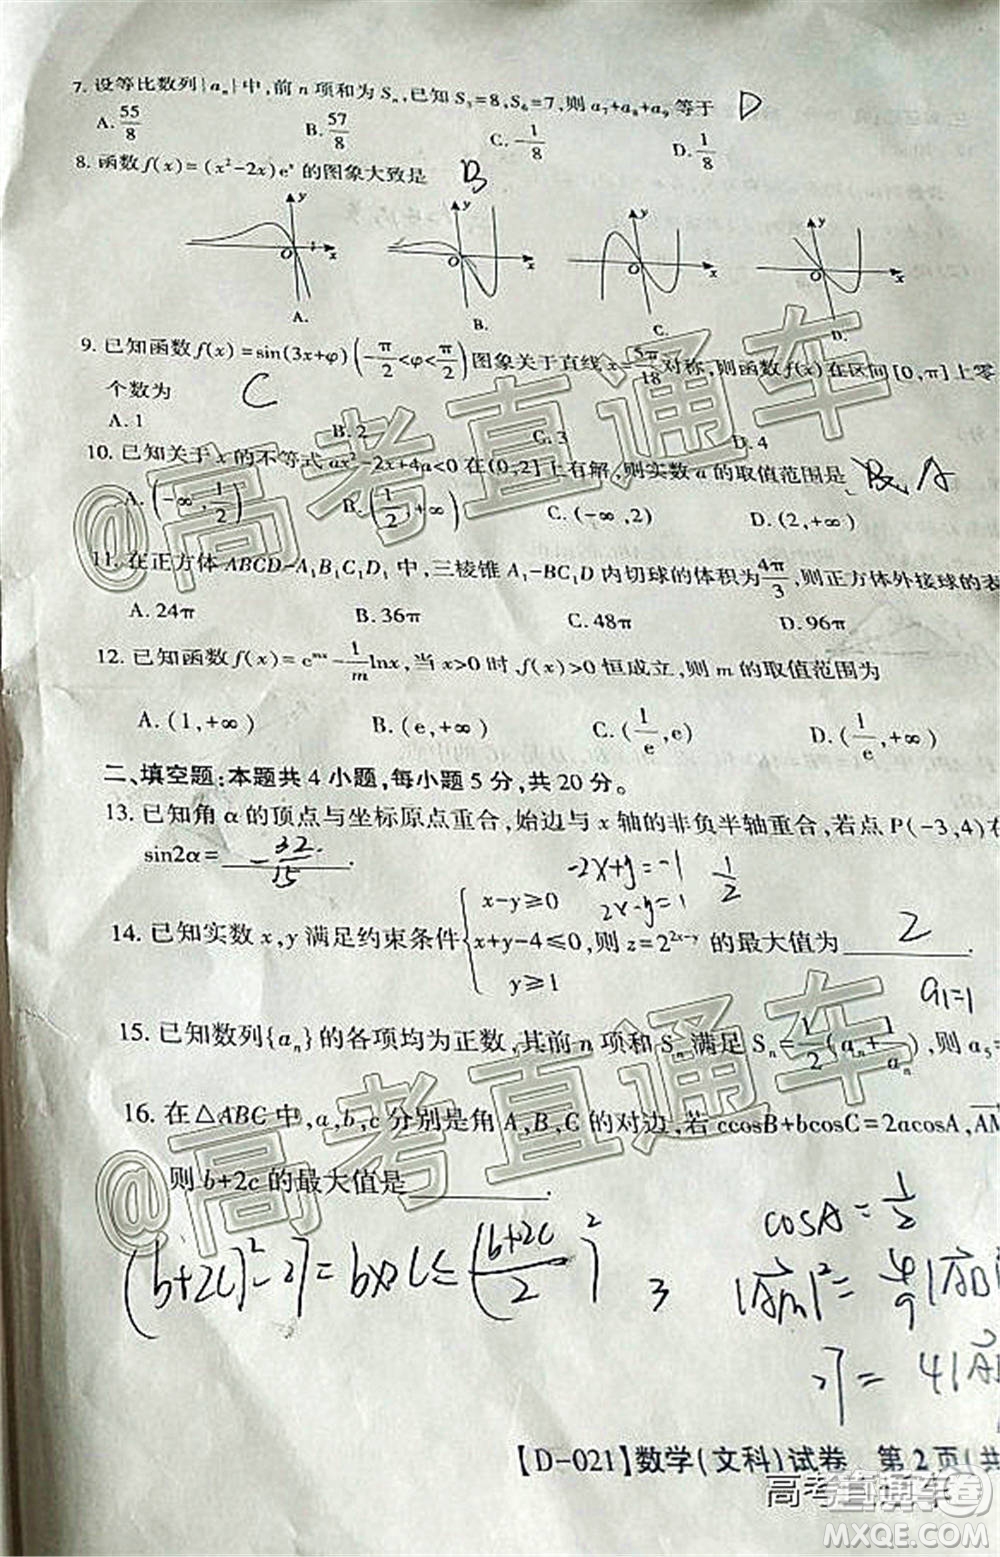 7. 设等比数列{aₙ}中,前 n 项和为 Sₙ,已知 S₃=8,S₆=7,则 a₇+a₈+a₉ 等于 D
A. 55/8 B. 57/8 C. -1/8 D. 1/8
8. 函数 f(x)=(x²-2x)eˣ 的图象大致是 B
y y y y
O x O x O x O x
A. B. C. D.
9. 已知函数 f(x)=sin(3x+φ)(-π/2<φ<π/2)图象关于直线 x=5π/18 对称,则函数 f(x)在区间[0,π]上零
个数为 C
A. 1 B. 2 C. 3 D. 4
10. 已知关于 x 的不等式 ax²-2x+4a<0 在(0,2]上有解,则实数 a 的取值范围是 A
A. (-∞,1/2) B. (1/2,+∞) C. (-∞,2) D. (2,+∞)
11. 在正方体 ABCD-A₁B₁C₁D₁ 中,三棱锥 A₁-BC₁D 内切球的体积为4π/3,则正方体外接球的表
A. 24π B. 36π C. 48π D. 96π
12. 已知函数 f(x)=eᵐˣ-1/m lnx,当 x>0 时 f(x)>0 恒成立,则 m 的取值范围为
A. (1,+∞) B. (e,+∞) C. (1/e,e) D. (1/e,+∞)
二、填空题:本题共 4 小题,每小题 5 分,共 20 分。
13. 已知角 α 的顶点与坐标原点重合,始边与 x 轴的非负半轴重合,若点 P(-3,4)在
sin2α= -32/15 .
-2x+y=-1 1/2
2x-y=1
14. 已知实数 x,y 满足约束条件{x-y≥0 x+y-4≤0 y≥1,则 z=2²ˣ⁻ʸ 的最大值为 2 .
a₁=1
15. 已知数列{aₙ}的各项均为正数,其前 n 项和 Sₙ 满足 Sₙ=1/2(aₙ+1/aₙ),则 a₅=
16. 在△ABC 中,a,b,c 分别是角 A,B,C 的对边,若 ccosB+bcosC=2acosA,AM
则 b+2c 的最大值是 .
cosA=1/2
(b+2c)²-27=b×2c≤((b+2c)/2)² 3
|AM|²=4/9|AB|²
27=4|A
【D-021】数学(文科)试卷 第 2 页(共
@高考直通车
@高考直通车
高考直通车
答案圈
MXQE.COM